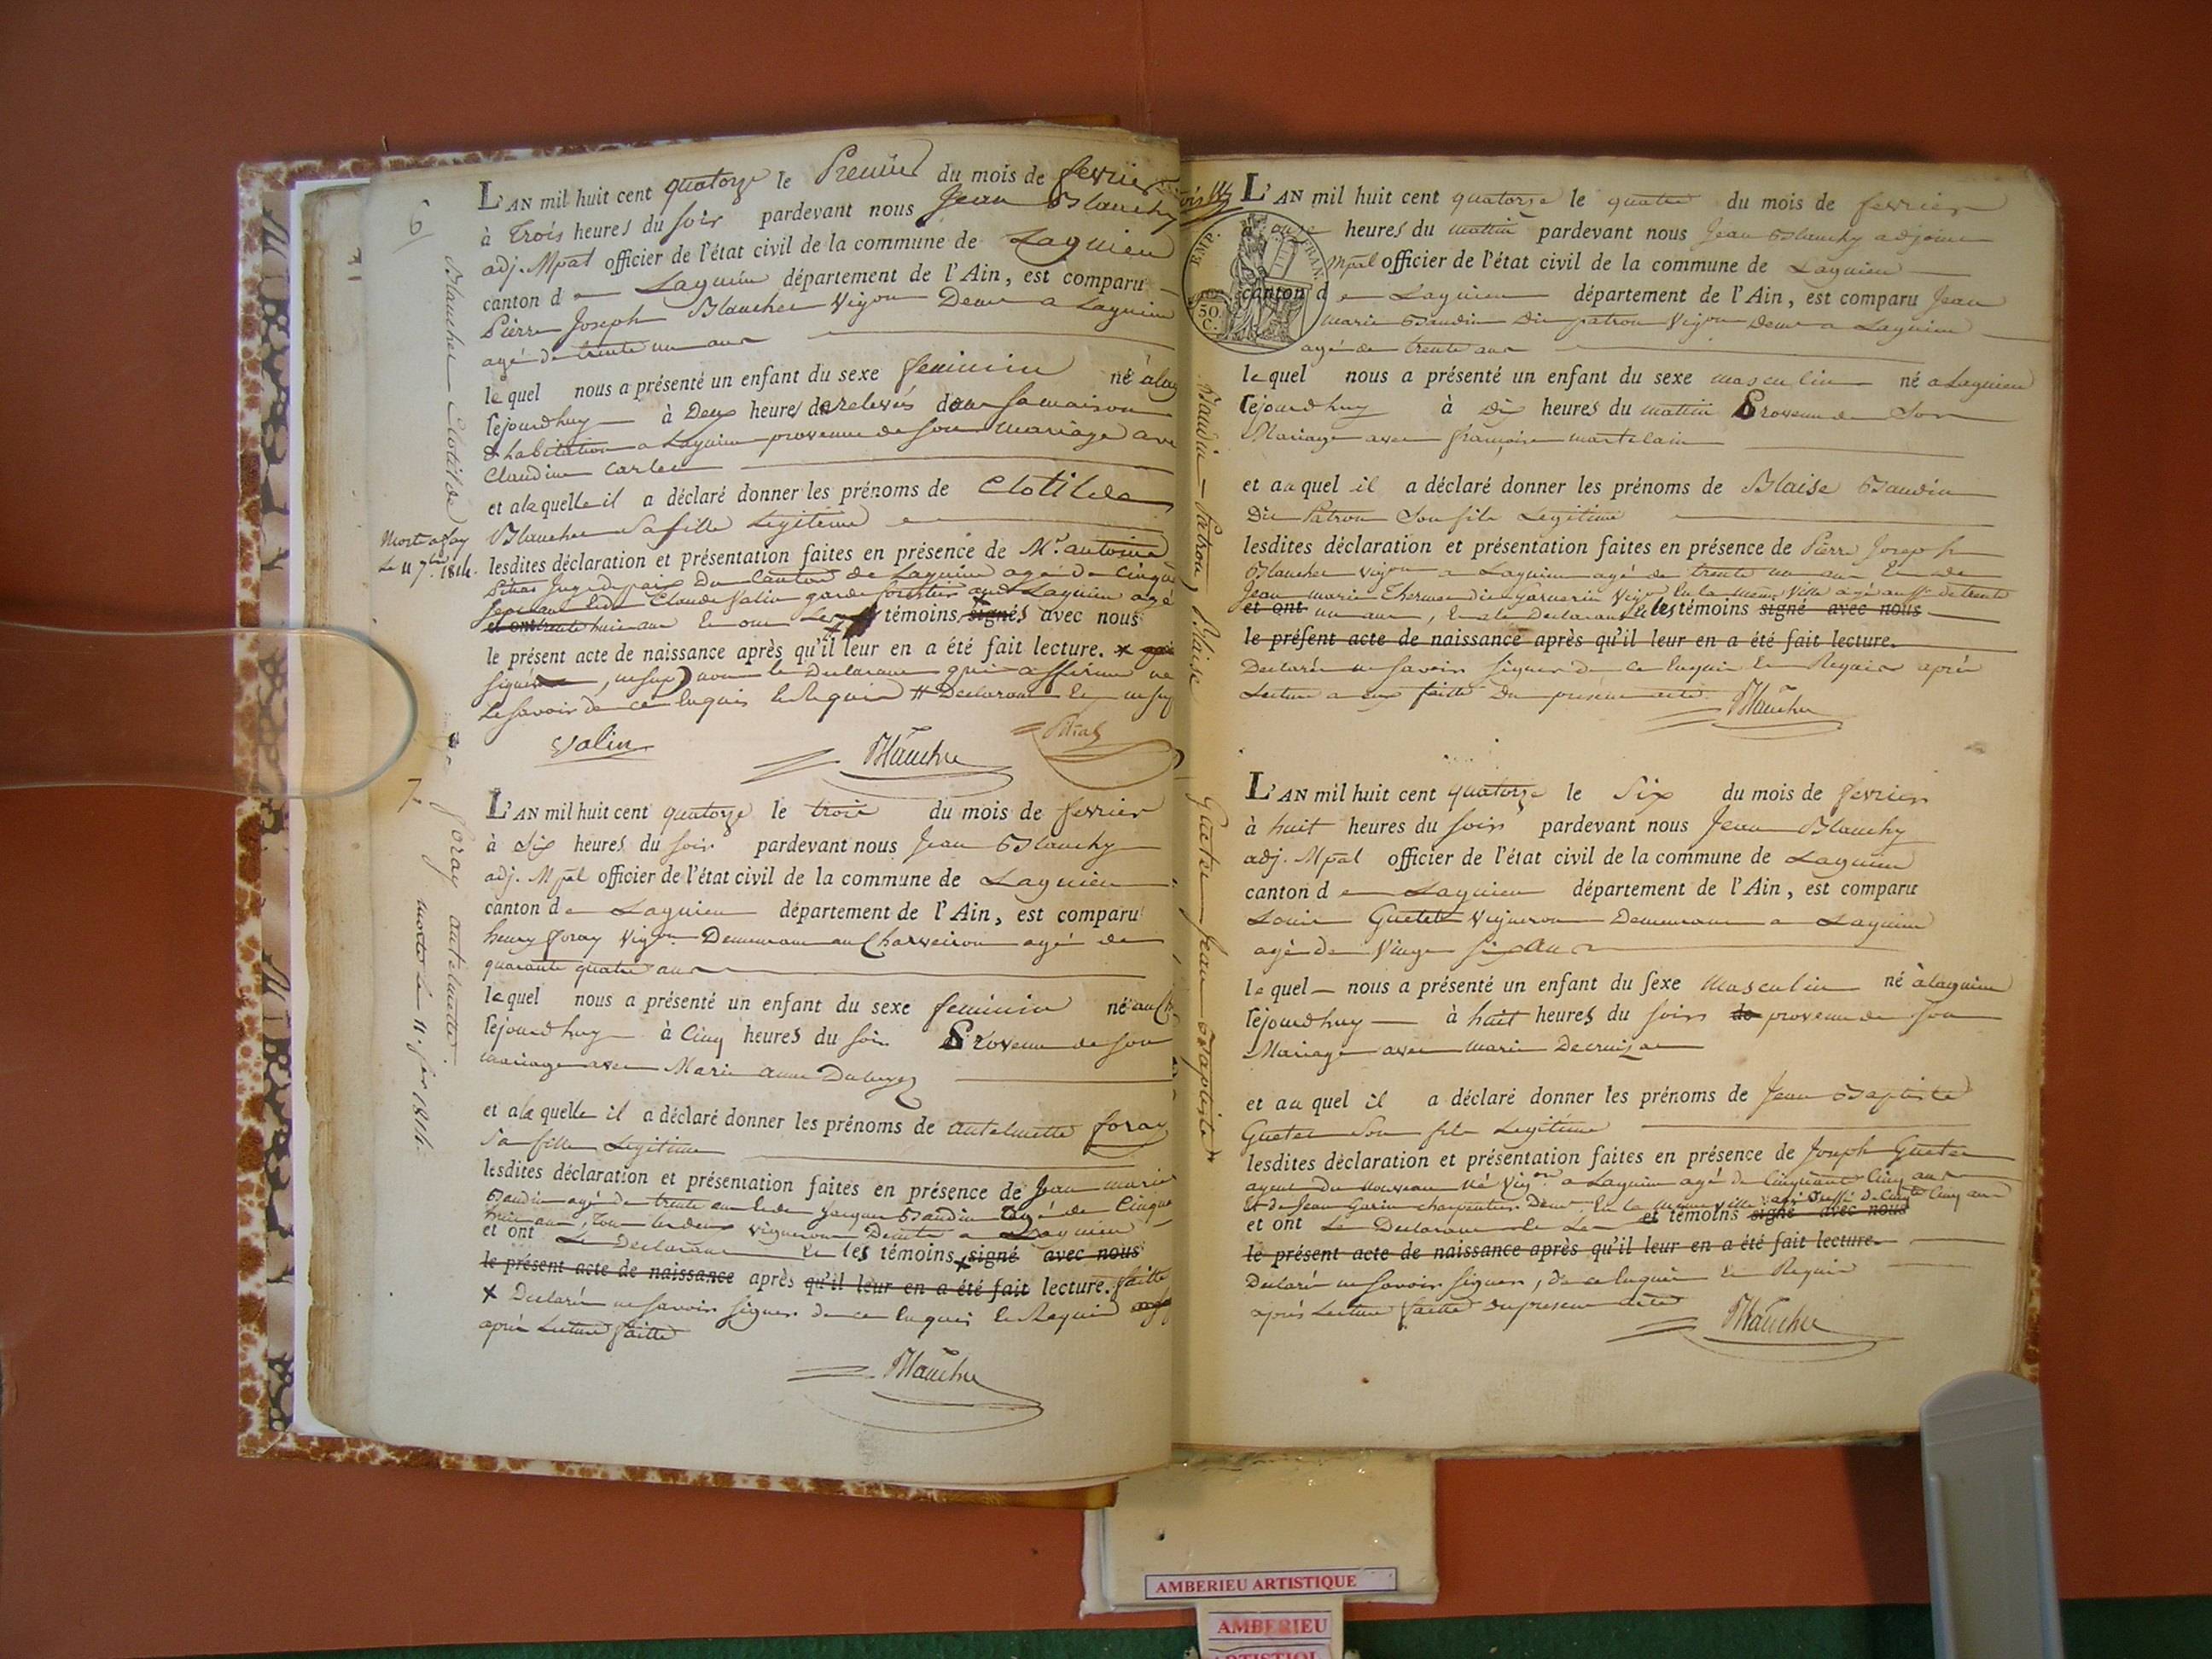 6
L'AN mil huit cent quatorze le Premier du mois de fevrier
à Trois heures du soir pardevant nous Jean Blanchy
adj. Mpal officier de l'état civil de la commune de Lagnieu
canton de Lagnieu département de l'Ain, est comparu
Pierre Joseph Blanchet Vigon Demt a Lagnieu
agé de trente un ans
lequel nous a présenté un enfant du sexe feminin né à lag
cejourdhuy à Deux heures de relevés dans sa maison
d'habitation a Lagnieu provenu de son mariage avec
Claudine Carlet
et à laquelle il a déclaré donner les prénoms de Clotilde
Blanchet sa fille legitime
lesdites déclaration et présentation faites en présence de Mr. antoine
Juge de paix Du Canton de Lagnieu agé de Cinqte
sept ans et de Claude Valin garde forestier a Lagnieu agé
et ont trente huit ans témoins signés avec nous
le présent acte de naissance après qu'il leur en a été fait lecture.
signé non le Declarant qui a affirmé ne
le savoir de ce enquis et Requis
Valin Blanchy
Blanchet Clotilde
Mort a fay
Le 11 7bre 1814.
7.
L'AN mil huit cent quatorze le trois du mois de fevrier
à Six heures du soir pardevant nous Jean Blanchy
adj. Mpal officier de l'état civil de la commune de Lagnieu
canton de Lagnieu département de l'Ain, est comparu
henry foray Vigon Demeurant au Charveiron agé de
quarante quatre ans
lequel nous a présenté un enfant du sexe feminin né au Ch
cejourdhuy à Cinq heures du soir Provenu de son
mariage avec Marie anne
et à laquelle il a déclaré donner les prénoms de antelmette foray
sa fille Legitime
lesdites déclaration et présentation faites en présence de Jean marie
Baudin agé de trente ans et de Jacques Baudin agé de Cinqte
huit ans, tous les deux vignerons Demts a Lagnieu
et ont Le Declarant et les témoins signé avec nous
le présent acte de naissance après qu'il leur en a été fait lecture. faitte
x Declarés ne savoir signer de ce enquis et Requis
après Lecture faitte
Blanchy
foray antelmette
morte le 11. 1814.
L'AN mil huit cent quatorze le quatre du mois de fevrier
à onze heures du mattin pardevant nous Jean Blanchy adjoint
Mpal officier de l'état civil de la commune de Lagnieu
canton de Lagnieu département de l'Ain, est comparu Jean
marie Baudin Dit patron Vigon Demt a Lagnieu
agé de trente ans
lequel nous a présenté un enfant du sexe masculin né a Lagnieu
cejourdhuy à Dix heures du mattin Provenu de Son
Mariage avec françoise martelain
et auquel il a déclaré donner les prénoms de Blaise Baudin
Dit Patron Son fils Legitime
lesdites déclaration et présentation faites en présence de Pierre Joseph
Blanchet vigon a Lagnieu agé de trente un ans et de
Jean marie Thermes dit Vigon En la meme Ville agé aussi de trente
et ont un ans, Et le Declarant et les témoins signé avec nous
le présent acte de naissance après qu'il leur en a été fait lecture.
Declarés ne savoir signer de ce Enquis et Requis après
Lecture a eux faitte Du present acte
Blanchy
EMP. FRAN.
50. C.
Baudin Patron, Blaise
L'AN mil huit cent quatorze le Six du mois de fevrier
à huit heures du soir pardevant nous Jean Blanchy
adj. Mpal officier de l'état civil de la commune de Lagnieu
canton de Lagnieu département de l'Ain, est comparu
Louis Guetet Vigneron Demeurant a Lagnieu
agé de Vingt six ans
lequel nous a présenté un enfant du sexe Masculin né à lagnieu
cejourdhuy à huit heures du soir de provenu de son
Mariage avec marie Decroizat
et auquel il a déclaré donner les prénoms de Jean Baptiste
Guetet Son fils Legitime
lesdites déclaration et présentation faites en présence de Joseph Guetet
ayeul Du nouveau Né Vigon a Lagnieu agé de Cinquante Cinq ans
Et de Jean Garin charpentier Demt En la meme ville agé aussi de Cinqte Cinq ans
et ont Le Declarant et Les et témoins signé avec nous
le présent acte de naissance après qu'il leur en a été fait lecture.
Declarés ne savoir signer, de ce Enquis et Requis
après Lecture faitte du present acte
Blanchy
Guetet Jean Baptiste
AMBERIEU ARTISTIQUE
AMBERIEU